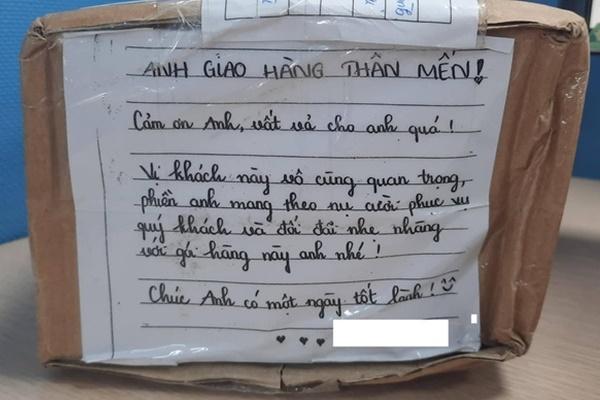 ANH GIAO HÀNG THÂN MẾN!
Cảm ơn Anh, vất vả cho anh quá !
Vị khách này vô cùng quan trọng,
phiền anh mang theo nụ cười phục vụ
quý khách và đối đãi nhẹ nhàng
với gá hàng này anh nhé !
Chúc Anh có một ngày tốt lành !